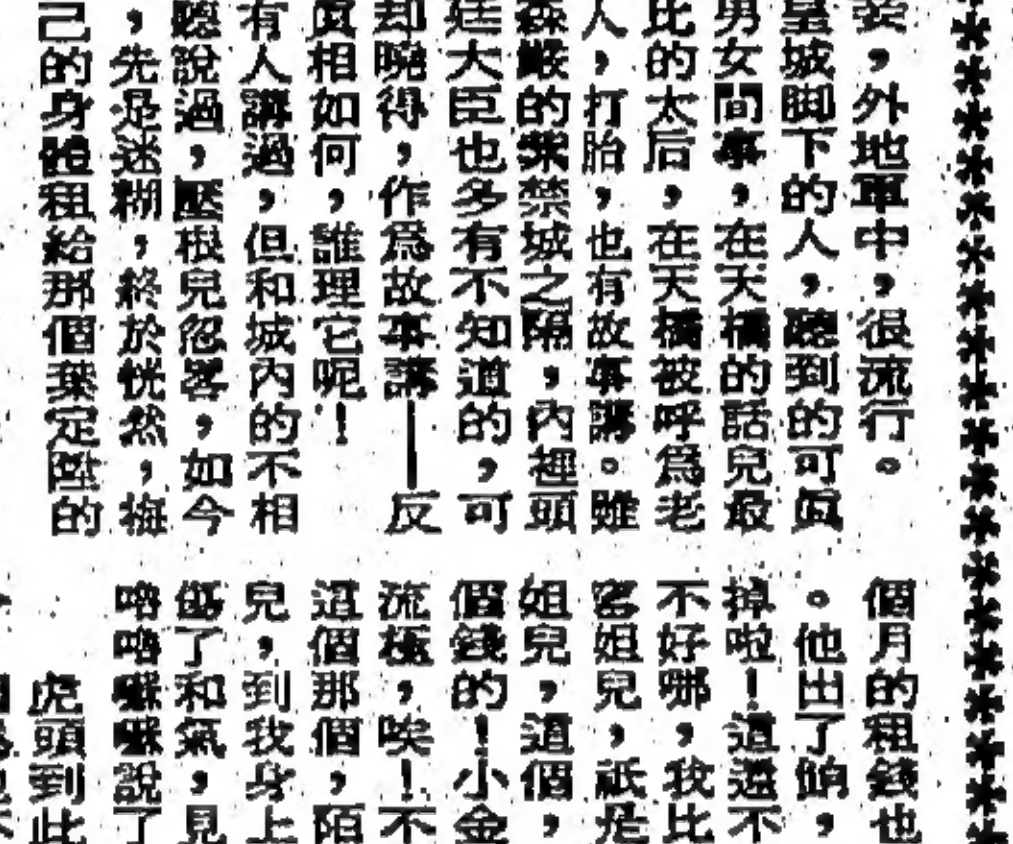 裝，外地軍中，很流行。
皇城脚下的人，聽到的可眞
男女間事，在天橋的話兒最
比的太后，在天橋被呼爲老
人，打胎，也有故事講。雖
森嚴的紫禁城之隔，內裡頭
廷大臣也多有不知道的，可
却曉得，作爲故事講——反
眞相如何，誰理它呢！
有人講過，但和城內的不相
聽說過，壓根兒忽畧，如今
，先是迷糊，終於恍然，梅
己的身體租給那個葉定陞的
個月的租錢也
。他出了餉，
掉啦！這還不
不好哪，我比
窰姐兒，祇是
姐兒，這個，
個錢的！小金
流極，唉！不
這個那個，陌
兒，到我身上
了和氣，見
咪咪說了
虎頭到此